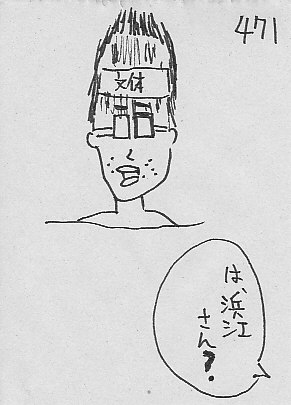 471
文体
は、浜江
さん?